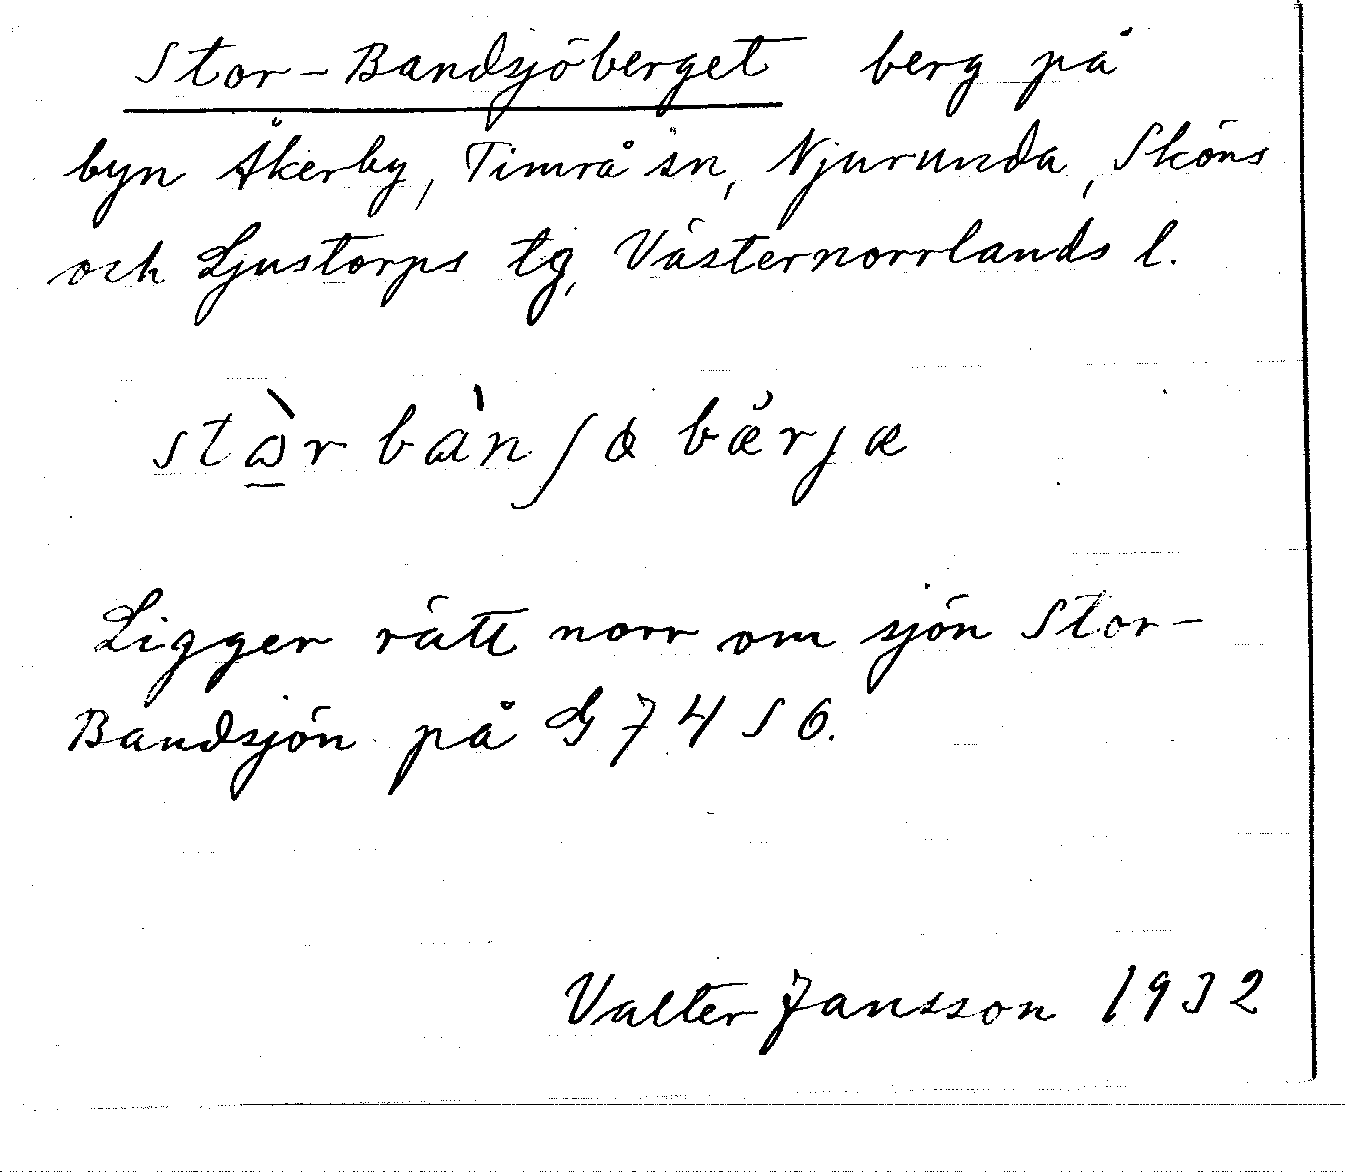 Stor-Bandsjöberget berg på
byn Åkerby, Timrå sn, Njurunda, Sköns
och Ljustorps tg, Västernorrlands l.
Ligger rätt norr om sjön Stor-
Bandsjön på G 74 S 6.
Valter Jansson 1932